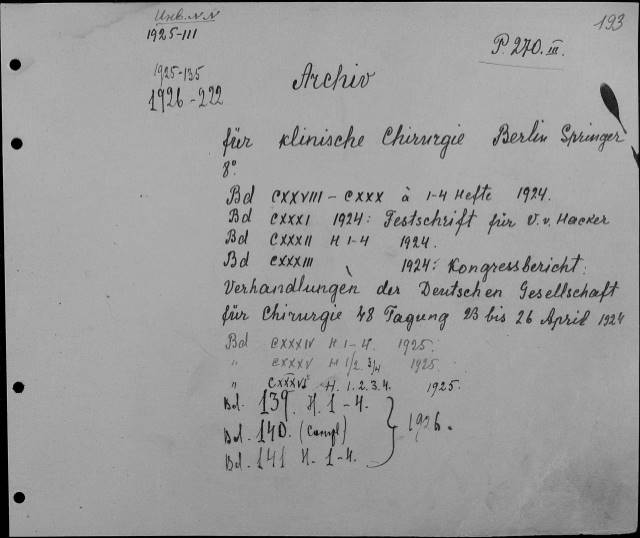 193
1925-III
P. 270. III.
1925-135
1926-222
Archiv
für klinische Chirurgie Berlin Springer
8°.
Bd CXXVIII - CXXX à 1-4 Hefte 1924.
Bd CXXXI 1924: Festschrift für V. v. Hacker
Bd CXXXII H 1-4 1924.
Bd CXXXIII 1924: Kongressbericht:
Verhandlungen der Deutschen Gesellschaft
für Chirurgie 48 Tagung 23 bis 26 April 1924
Bd CXXXIV H 1-4. 1925.
" CXXXV H 1/2. 3/4 1925.
" CXXXVI H. 1.2.3.4. 1925.
Bd. 139. H. 1-4.
Bd. 140. (Compl) 1926.
Bd. 141 H. 1-4.